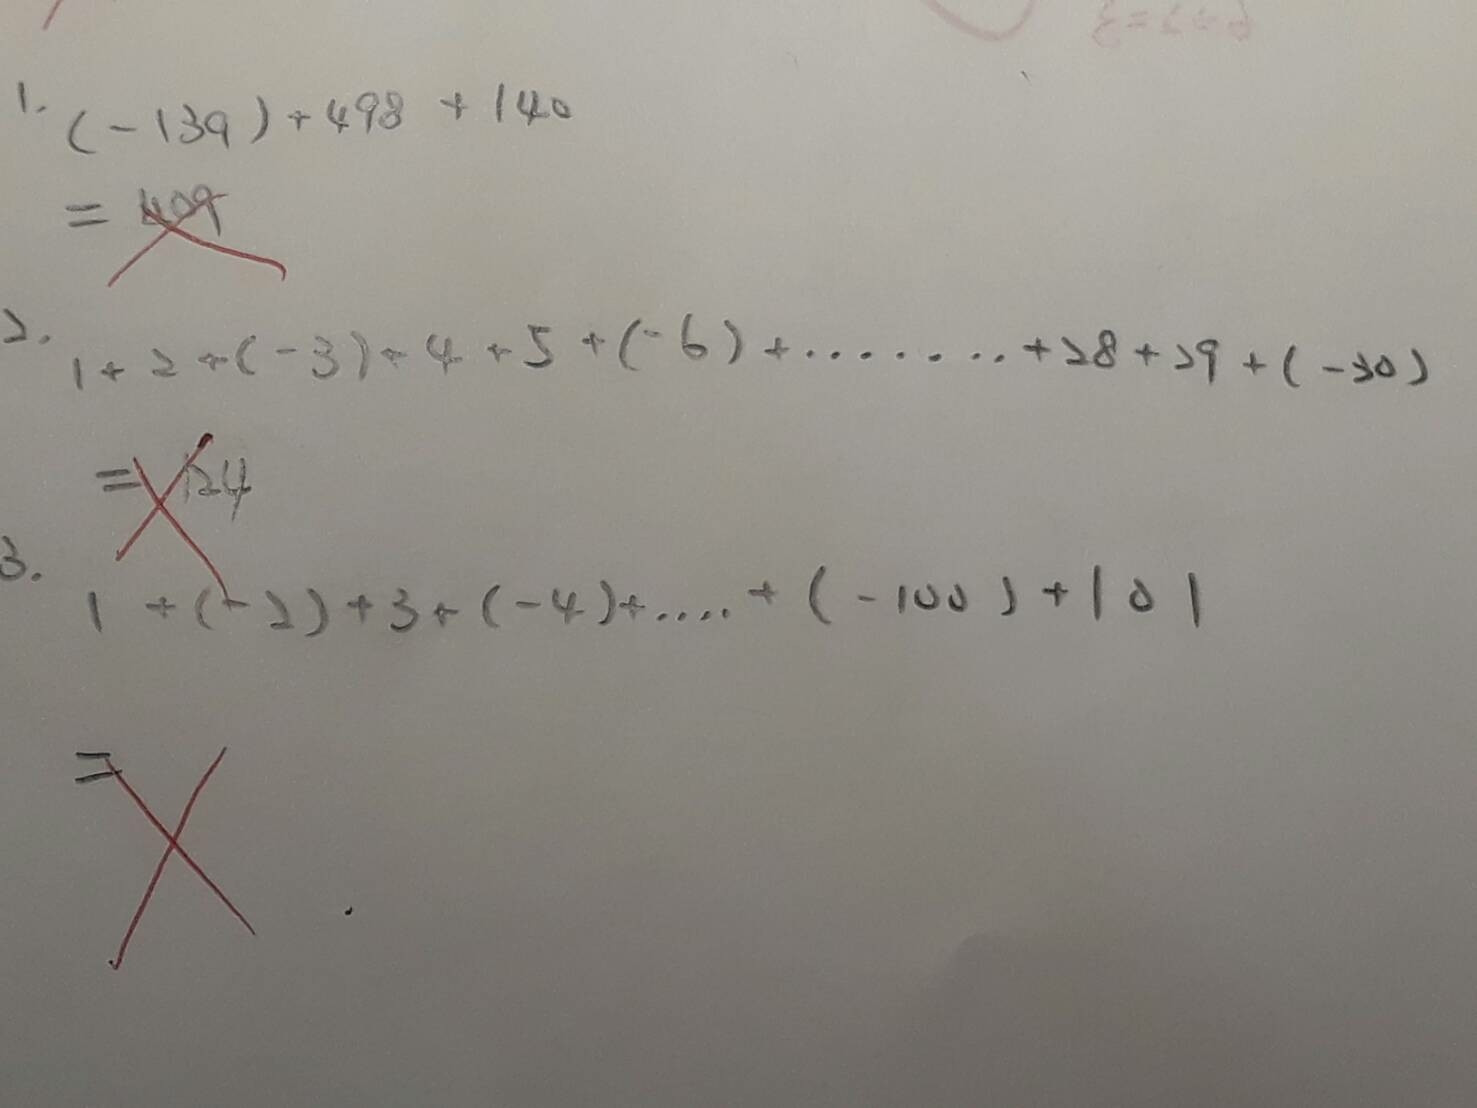 1. (-139)+498 + 140
= 409
2. 1+2+(-3)+4+5+(-6)+........+28+29+(-30)
= 124
3. 1+(-2)+3+(-4)+....+(-100)+101
=